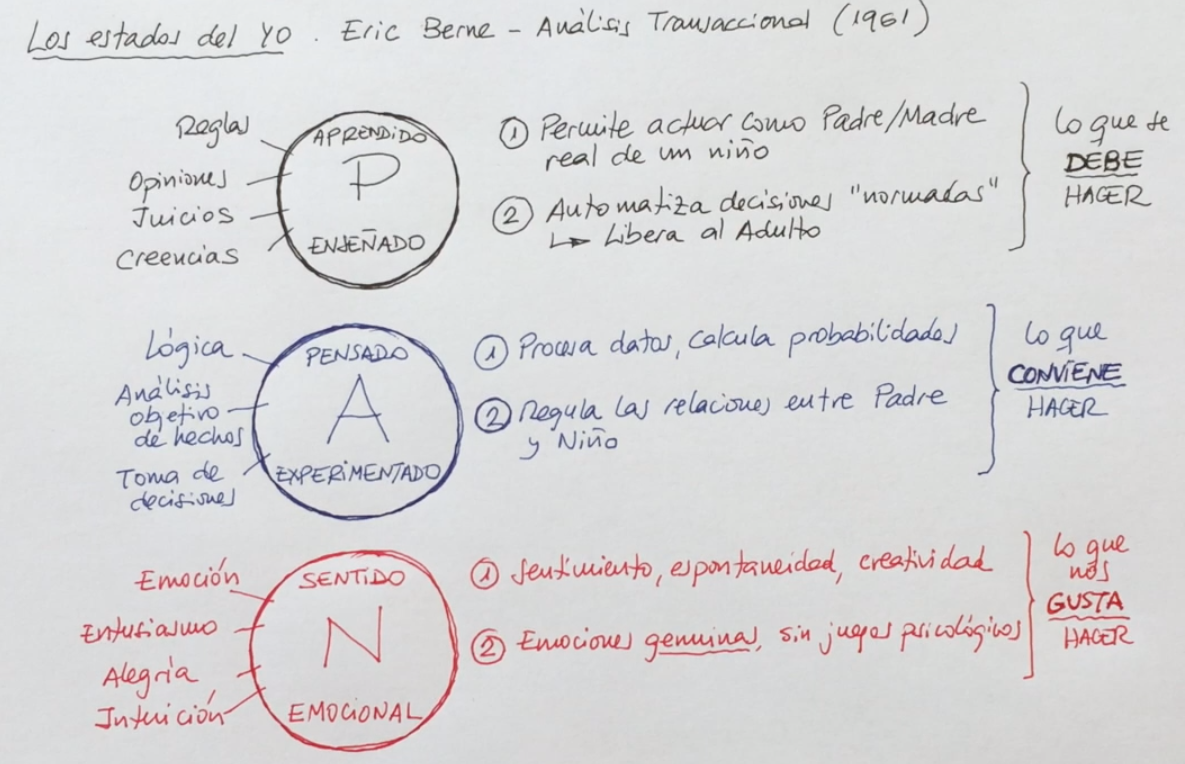 Los estados del YO . Eric Berne - Análisis Transaccional (1961)
Reglas
Opiniones
Juicios
Creencias
APRENDIDO
P
ENSEÑADO
① Permite actuar como Padre/Madre
real de un niño
② Automatiza decisiones "normadas"
↳ Libera al Adulto
Lo que se
DEBE
HACER
Lógica
Análisis
objetivo
de hechos
Toma de
decisiones
PENSADO
A
EXPERIMENTADO
① Procesa datos, calcula probabilidades
② Regula las relaciones entre Padre
y Niño
Lo que
CONVIENE
HACER
Emoción
Entusiasmo
Alegría
Intuición
SENTIDO
N
EMOCIONAL
① Sentimiento, espontaneidad, creatividad
② Emociones genuinas, sin juegos psicológicos
Lo que
nos
GUSTA
HACER